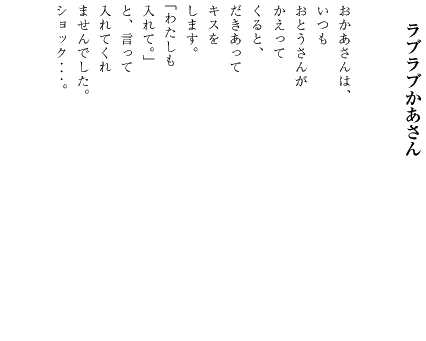 ラブラブかあさん
おかあさんは、
いつも
おとうさんが
かえって
くると、
だきあって
キスを
します。
「わたしも
入れて。」
と、言って
入れてくれ
ませんでした。
ショック・・・。